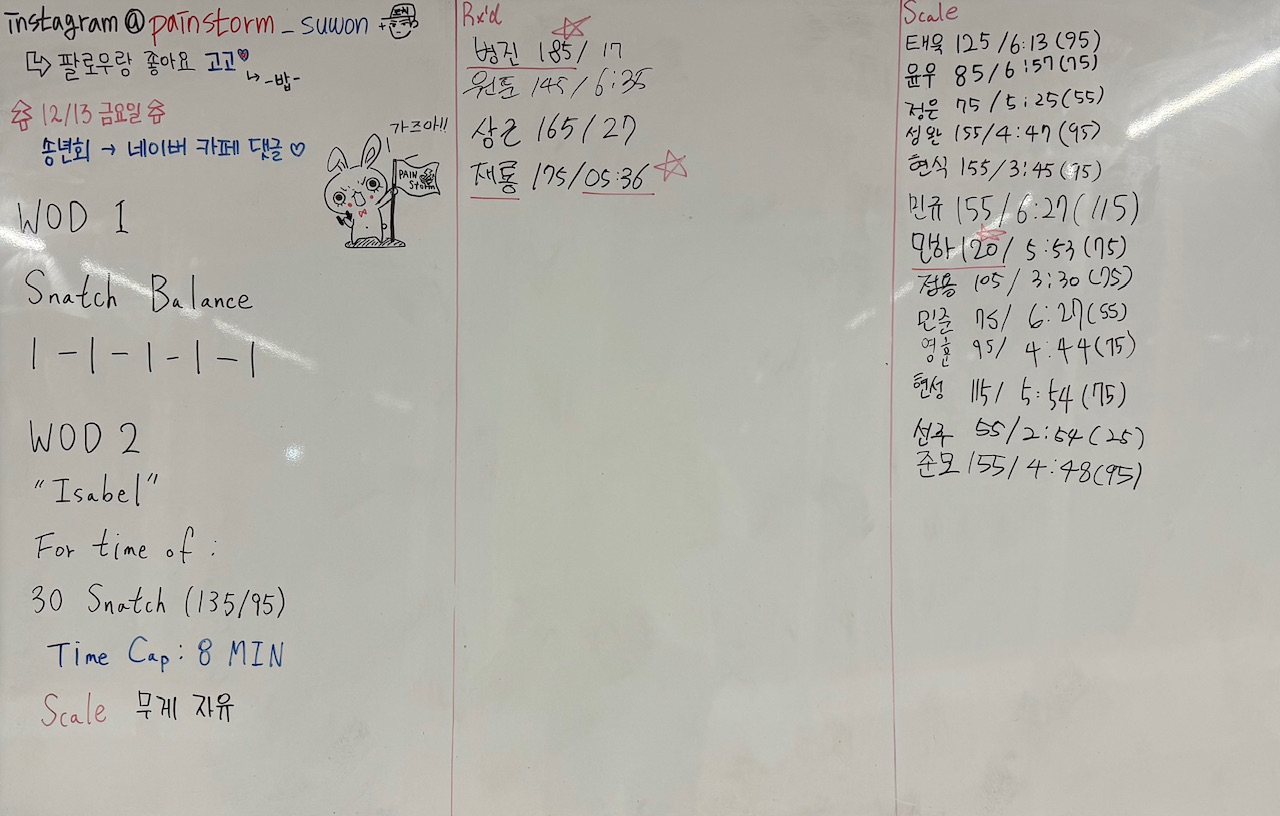 instagram@painstorm_suwon
팔로우랑 좋아요 고고
-밥-
12/13 금요일
송년회 → 네이버 카페 댓글 ♡
가즈아!!
PAIN Storm
WOD 1
Snatch Balance
1-1-1-1-1
WOD 2
"Isabel"
For time of :
30 Snatch (135/95)
Time Cap: 8 MIN
Scale 무게 자유
Rx'd
병진 185/ 17
원준 145/6:35
상근 165/27
재룡 175/05:36
Scale
태욱 125/6:13(95)
윤우 85/6:57(75)
정은 75/5:25(55)
성완 155/4:47(95)
현식 155/3:45(75)
민규 155/6:27(115)
민하 120/ 5:53(75)
정용 105/ 3:30(75)
민준 75/ 6:27(55)
영훈 95/ 4:44(75)
현성 115/ 5:54(75)
선주 55/2:54(25)
준모 155/4:48(95)